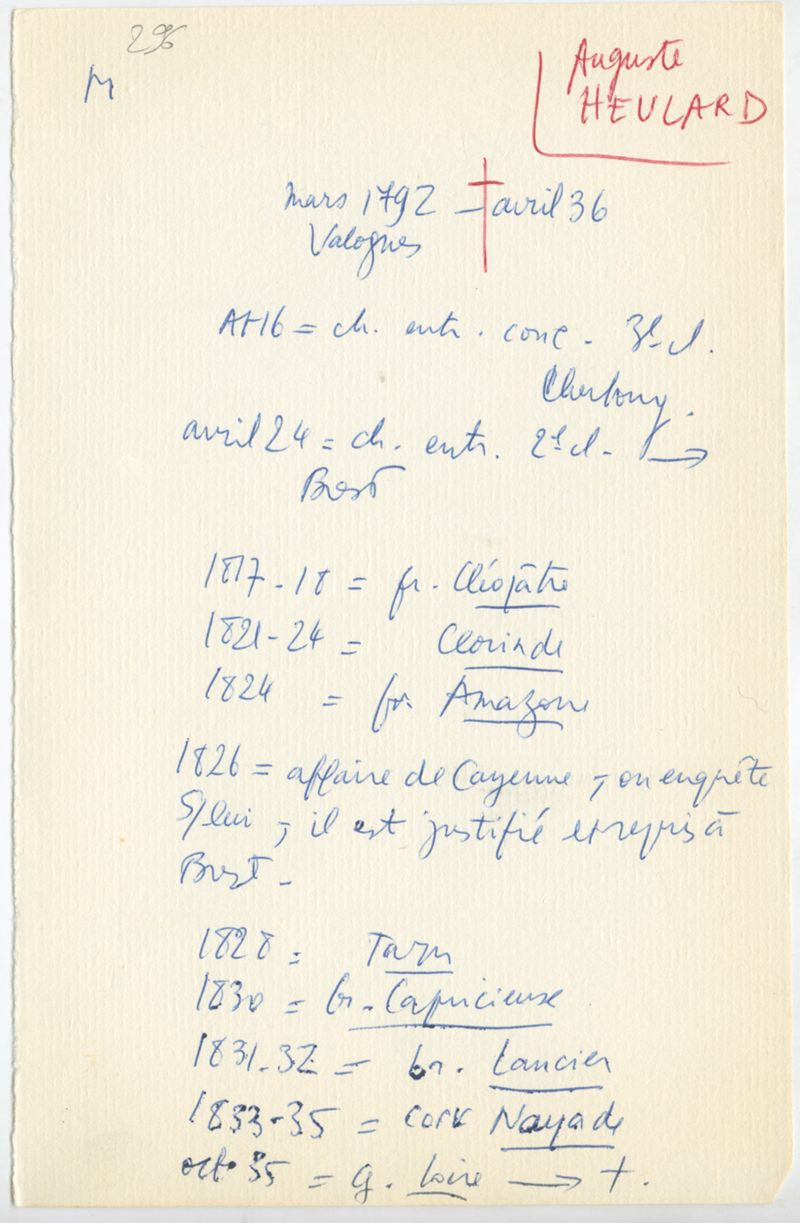 296
M
Auguste
HEULARD
mars 1792 — avril 36
Valognes
A+16 = ch. entr. conc. 3e cl.
Cherbourg.
avril 24 = ch. entr. 2e cl. →
Brest
1817-18 = fr. Cléopâtre
1821-24 = Clorinde
1824 = fr. Amazone
1826 = affaire de Cayenne ; on enquête
s/lui ; il est justifié et repris à
Brest -
1828 = Tarn
1830 = br. Capricieuse
1831-32 = br. Lancier
1833-35 = corv Nayade
oct. 35 = g. Loire → +.